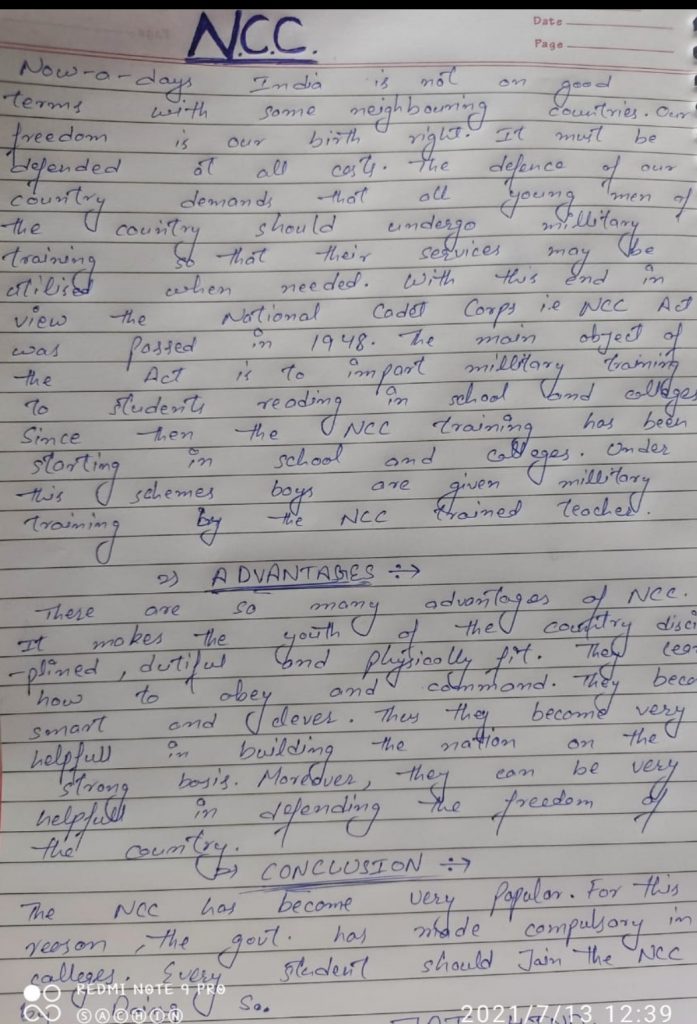 N.C.C.
Date
Page
Now-a-days India is not on good
terms with some neighbouring countries. Our
freedom is our birth right. It must be
defended at all costs. The defence of our
country demands that all young men of
the country should undergo millitary
training so that their services may be
utilised when needed. With this end in
view the National Cadet Corps i.e NCC Act
was passed in 1948. The main object of
the Act is to impart millitary training
to students reading in school and colleges
Since then the NCC training has been
starting in school and colleges. Under
this schemes boys are given millitary
training by the NCC trained teacher.
2) ADVANTAGES ÷→
There are so many advantages of NCC.
It makes the youth of the country disci
-plined, dutiful and physically fit. They lear
how to obey and command. They beco
smart and clever. Thus they become very
helpfull in building the nation on the
strong basis. Moreover, they can be very
helpfull in defending the freedom of
the country.
b) CONCLUSION ÷→
The NCC has become very popular. For this
reason, the govt. has made compulsory in
colleges. Every student should Join the NCC
by Doing so.
REDMI NOTE 9 PRO
SACHIN
2021/7/13 12:39